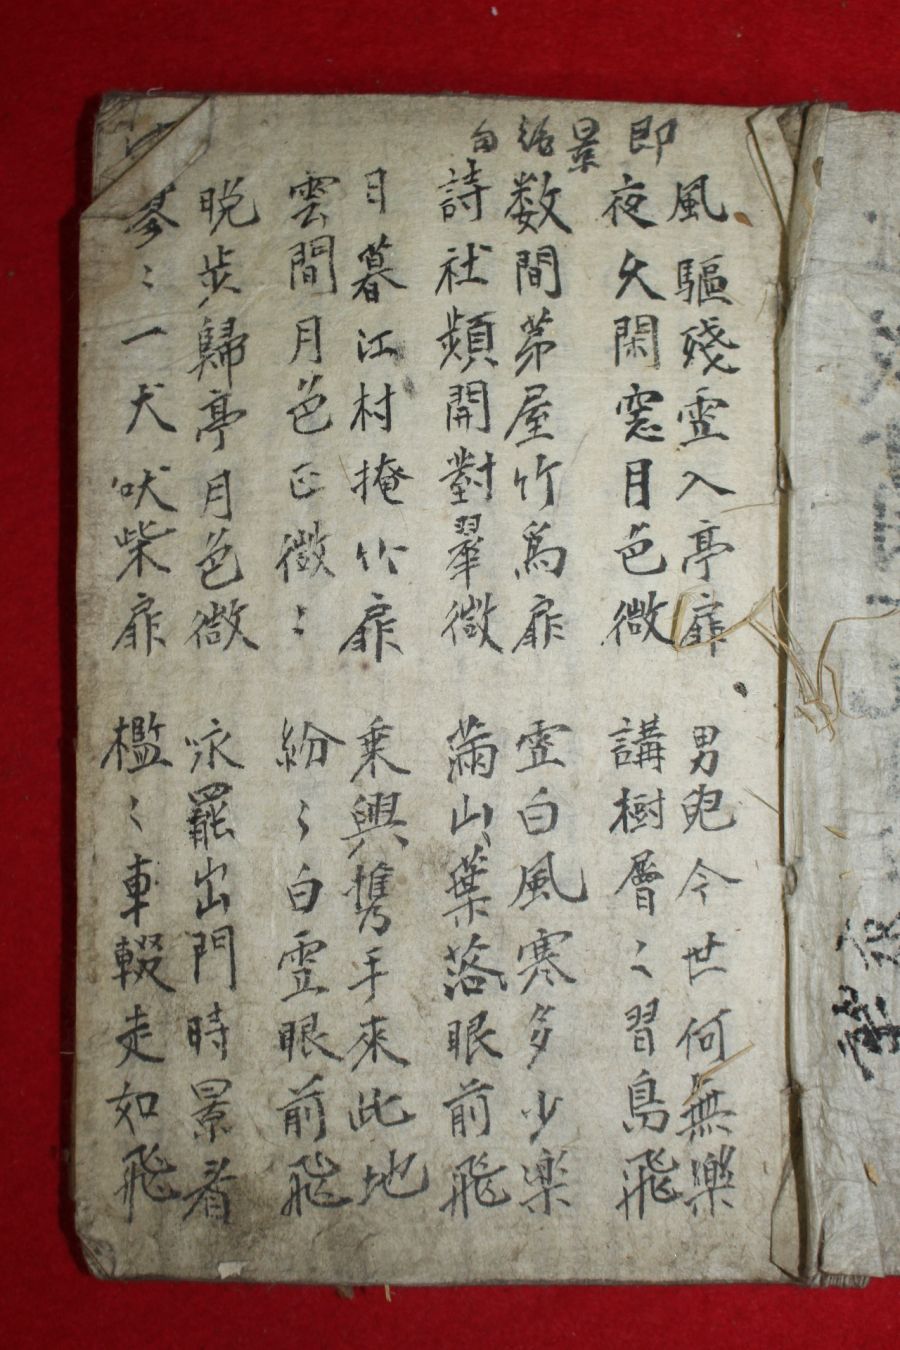 即景
絶句
風驅殘雲入亭扉 男兒今世何無樂
夜久閑窓月色微 講樹層〻習鳥飛
数間茅屋竹為扉 雲白風寒多少楽
詩社頻開對翠微 滿山葉落眼前飛
日暮江村掩竹扉 乗興携手來此地
雲間月色正微〻 紛〻白雲眼前飛
晩步歸亭月色微 咏罷出門時景看
一犬吠柴扉 檻〻車輟走如飛